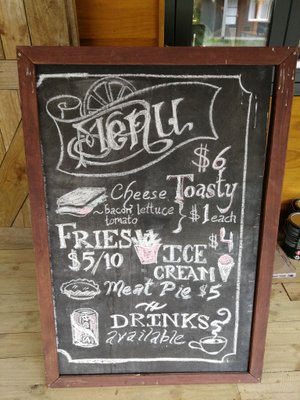 Menu
$6
Cheese Toasty
~ bacon lettuce tomato } $1 each
FRIES
$5/10
$4
ICE CREAM
Meat Pie $5
DRINKS
available